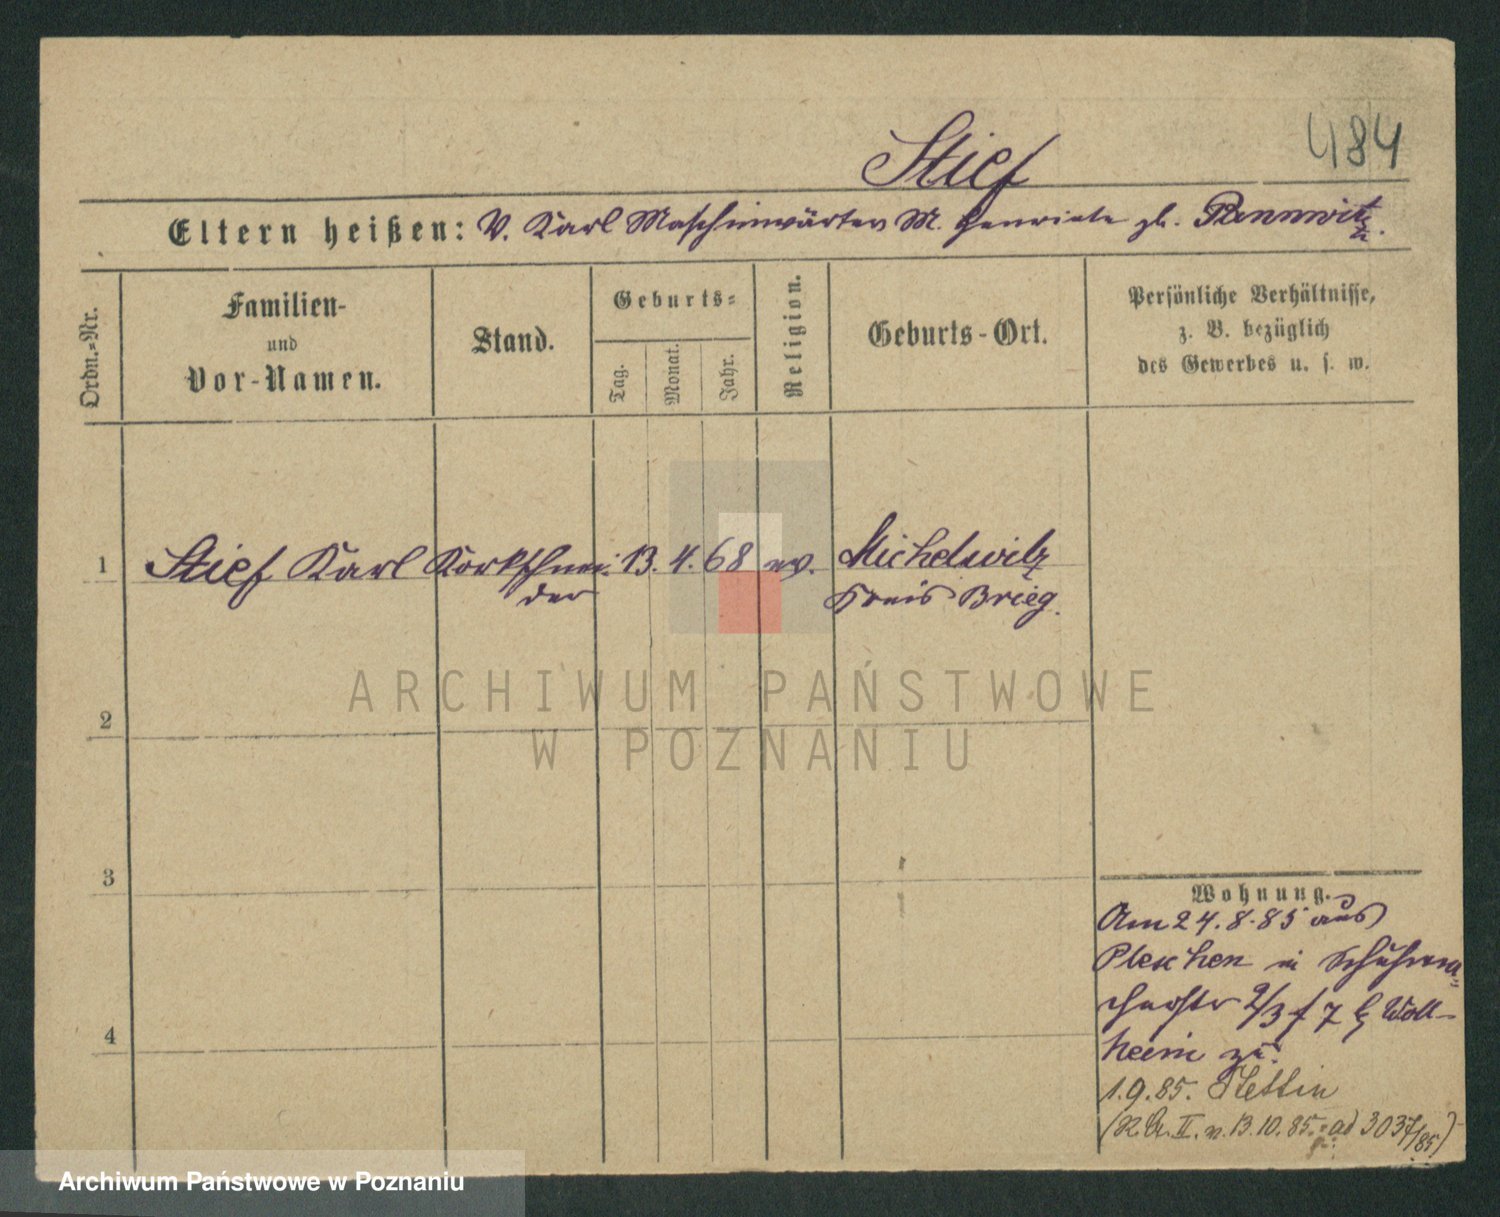 484
Stief
Eltern heißen: V. Karl Maschinwärter M. Henriete gb. Pannwitz
Ordn.-Nr.
Familien-
und
Vor-Namen.
Stand.
Geburts-
Tag.
Monat.
Jahr.
Religion.
Geburts-Ort.
Persönliche Verhältnisse,
z. B. bezüglich
des Gewerbes u. s. w.
1 Stief Karl Korkschnei- 13. 4. 68 ev. Michelwitz
der Kreis Brieg.
ARCHIWUM PAŃSTWOWE
W POZNANIU
2
3
4
Wohnung.
Am 24.8.85 aus
Pleschen in Schuhma-
cherstr 2/3 f 7 b Woll-
heim zu.
1.9.85. Stettin
(K.A. II. v. 13.10.85. ad 3037/85)
Archiwum Państwowe w Poznaniu